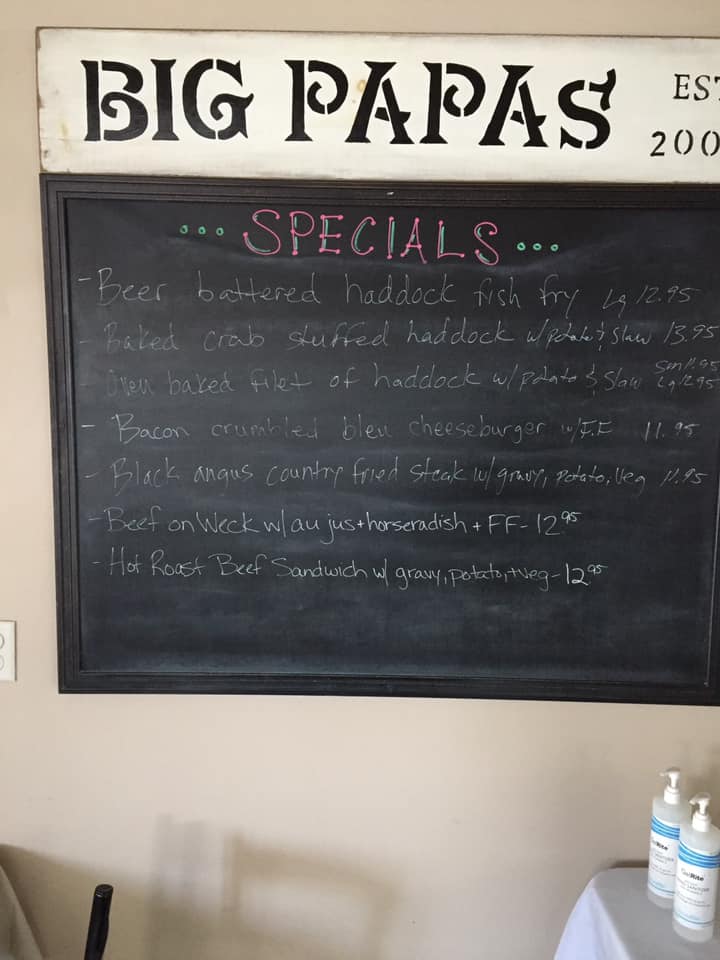 BIG PAPAS
EST
200
... SPECIALS ...
- Beer battered haddock fish fry Lg 12.95
- Baked crab stuffed haddock w/potato & Slaw 13.95
- Oven baked filet of haddock w/potato & Slaw Sm 11.95 Lg 12.95
- Bacon crumbled bleu cheeseburger w/F.F 11.95
- Black angus country fried steak w/gravy, potato, Veg 11.95
- Beef on Weck w/au jus + horseradish + FF - 12.95
- Hot Roast Beef Sandwich w/ gravy, potato, + veg - 12.95
GelRite
GelRite